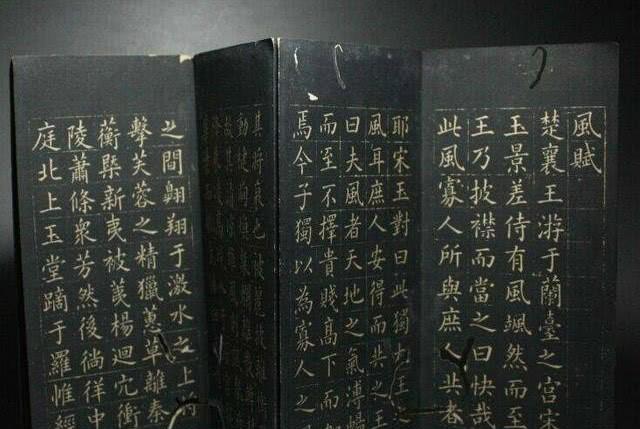 風賦
楚襄王游于蘭臺之宮宋
玉景差侍有風颯然而至
王乃披襟而當之曰快哉
此風寡人所與庶人共者
耶宋玉對曰此獨大王之
風耳庶人安得而共之王
曰夫風者天地之氣溥暢
而至不擇貴賤髙下而加
焉今子獨以為寡人之
其將衰也被麗披離
動楗眴煥粲爛離
故其清涼雄風
之間翱翔于激水之上將
擊芙蓉之精獵蕙草離秦
蘅槩新夷被荑楊迴穴衝
陵蕭條眾芳然後徜徉中
庭北上玉堂躋于羅惟經